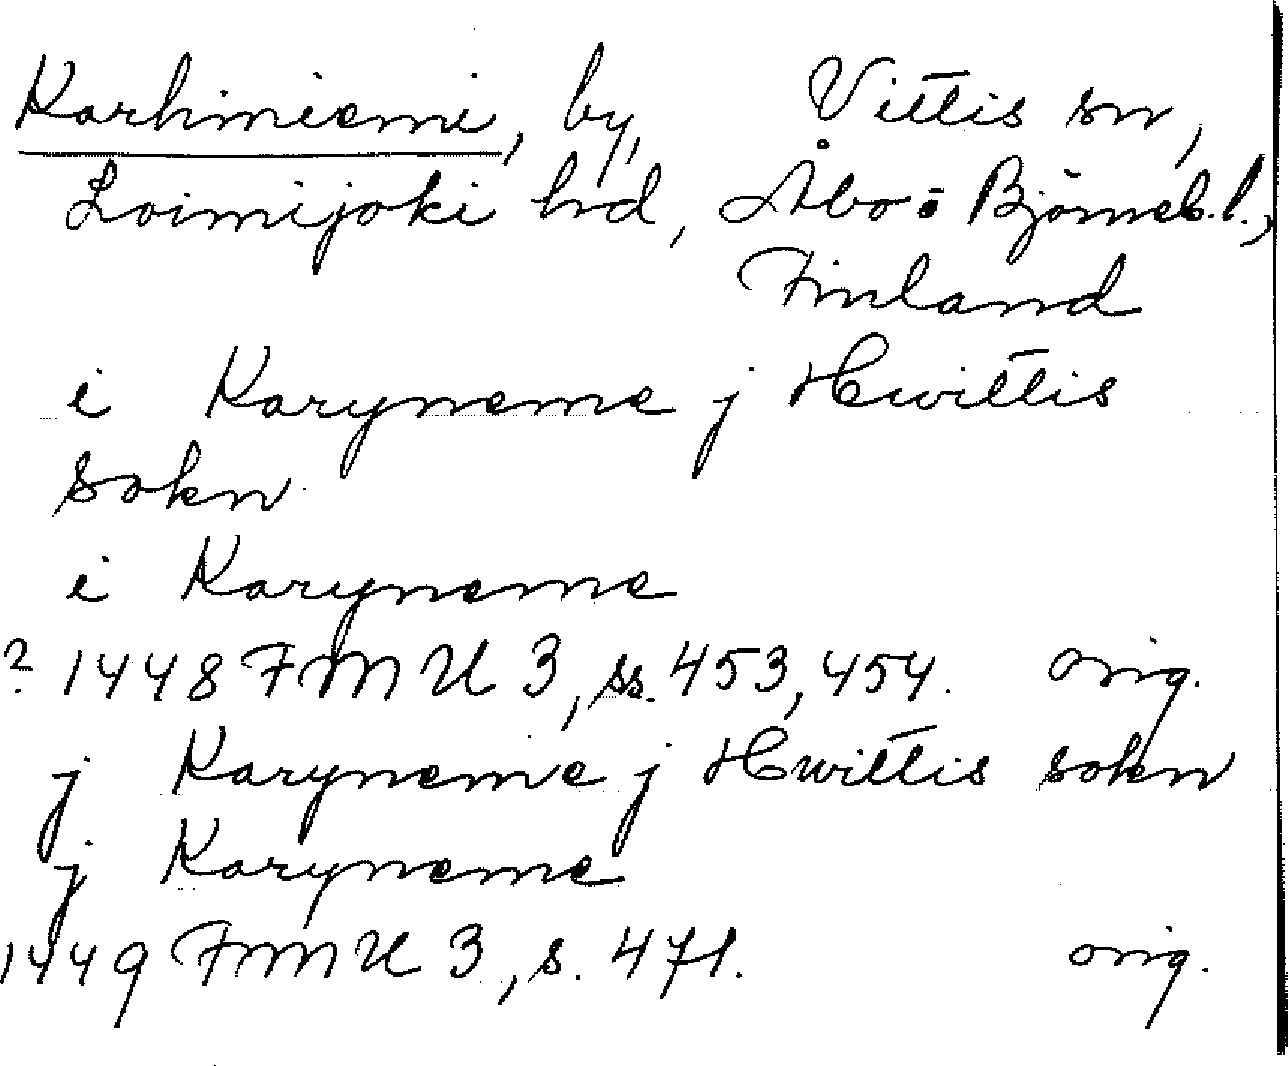 Karhiniemi, by, Vittis sn,
Loimijoki hd, Åbo o Björneb.l.,
Finland
i Karyneme j Hwittis
sokn
i Karyneme
? 1448 FMU 3, ss. 453, 454. orig.
j Karyneme j Hwittis sokn
j Karyneme
1449 FMU 3, s. 471. orig.